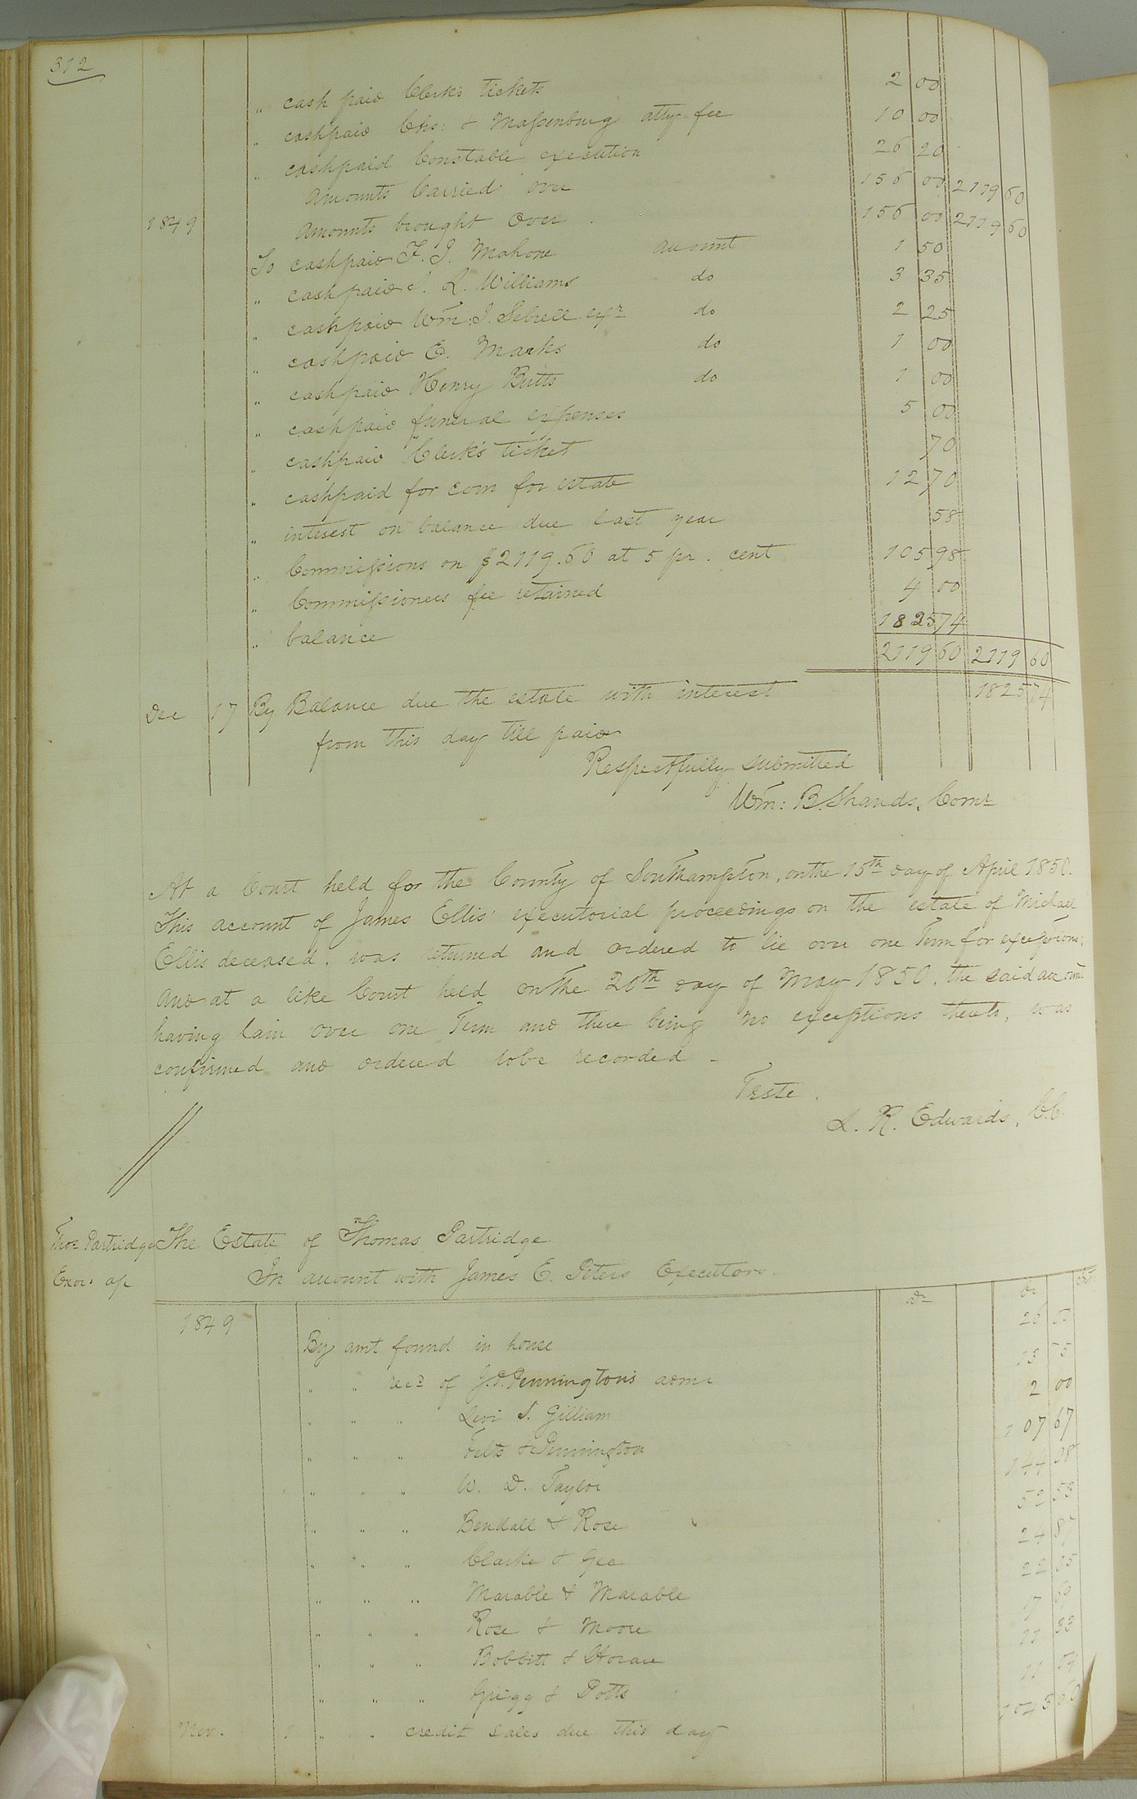 312
" cash paid Clerks tickets 2 00
" cash paid Chs: & Massenburg atty fee 10 00
" cash paid Constable execution 26 20
Amounts Carried over 156 00 2119 60
1849 Amounts brought Over 156 00 2119 60
To cash paid F. J. Mahone account 1 50
" cash paid L. Williams do 3 35
" cash paid Wm: J. Sebrell exr do 2 25
" cash paid E. Marks do 1 00
" cash paid Henry Butts do 1 00
" cash paid funeral expenses 5 00
" cash paid Clerk's ticket 70
" cash paid for corn for estate 12 70
" interest on balance due last year 58
" Commissions on $2119.60 at 5 pr. cent 105 98
" Commissioners fee retained 4 00
" balance 1825 74
2119 60 2119 60
Dec 17 By Balance due the estate with interest 1825 74
from this day till paid
Respectfully submitted
Wm: B. Shands, Comr
At a Court held for the County of Southampton, on the 15th day of April 1850.
This account of James Ellis' executorial proceedings on the estate of Michael
Ellis deceased. was returned and ordered to lie over one Term for exceptions;
And at a like Court held on the 20th day of May 1850, the said account
having lain over one Term and there being no exceptions thereto, was
confirmed and ordered to be recorded -
Teste.
L. R. Edwards, C.C.
Thos Partridge The Estate of Thomas Partridge
Exor. of In account with James E. Peters Executor.
Dr Cr
1849 By amt found in house 26
" " recd of J. D. Pennington's admr 13 75
" " " Levi S. Gilliam 2 00
" " " Felts & Pennington 107 67
" " " W. D. Taylor 144 98
" " " Bendall & Rose 52 53
" " " Clarke & Gee 24 87
" " " Marable & Marable 22
" " " Rose & Moore
" " " Bobbitt & 33
" " " Grigg & Potts
Nov. 1 " " credit sales due this day